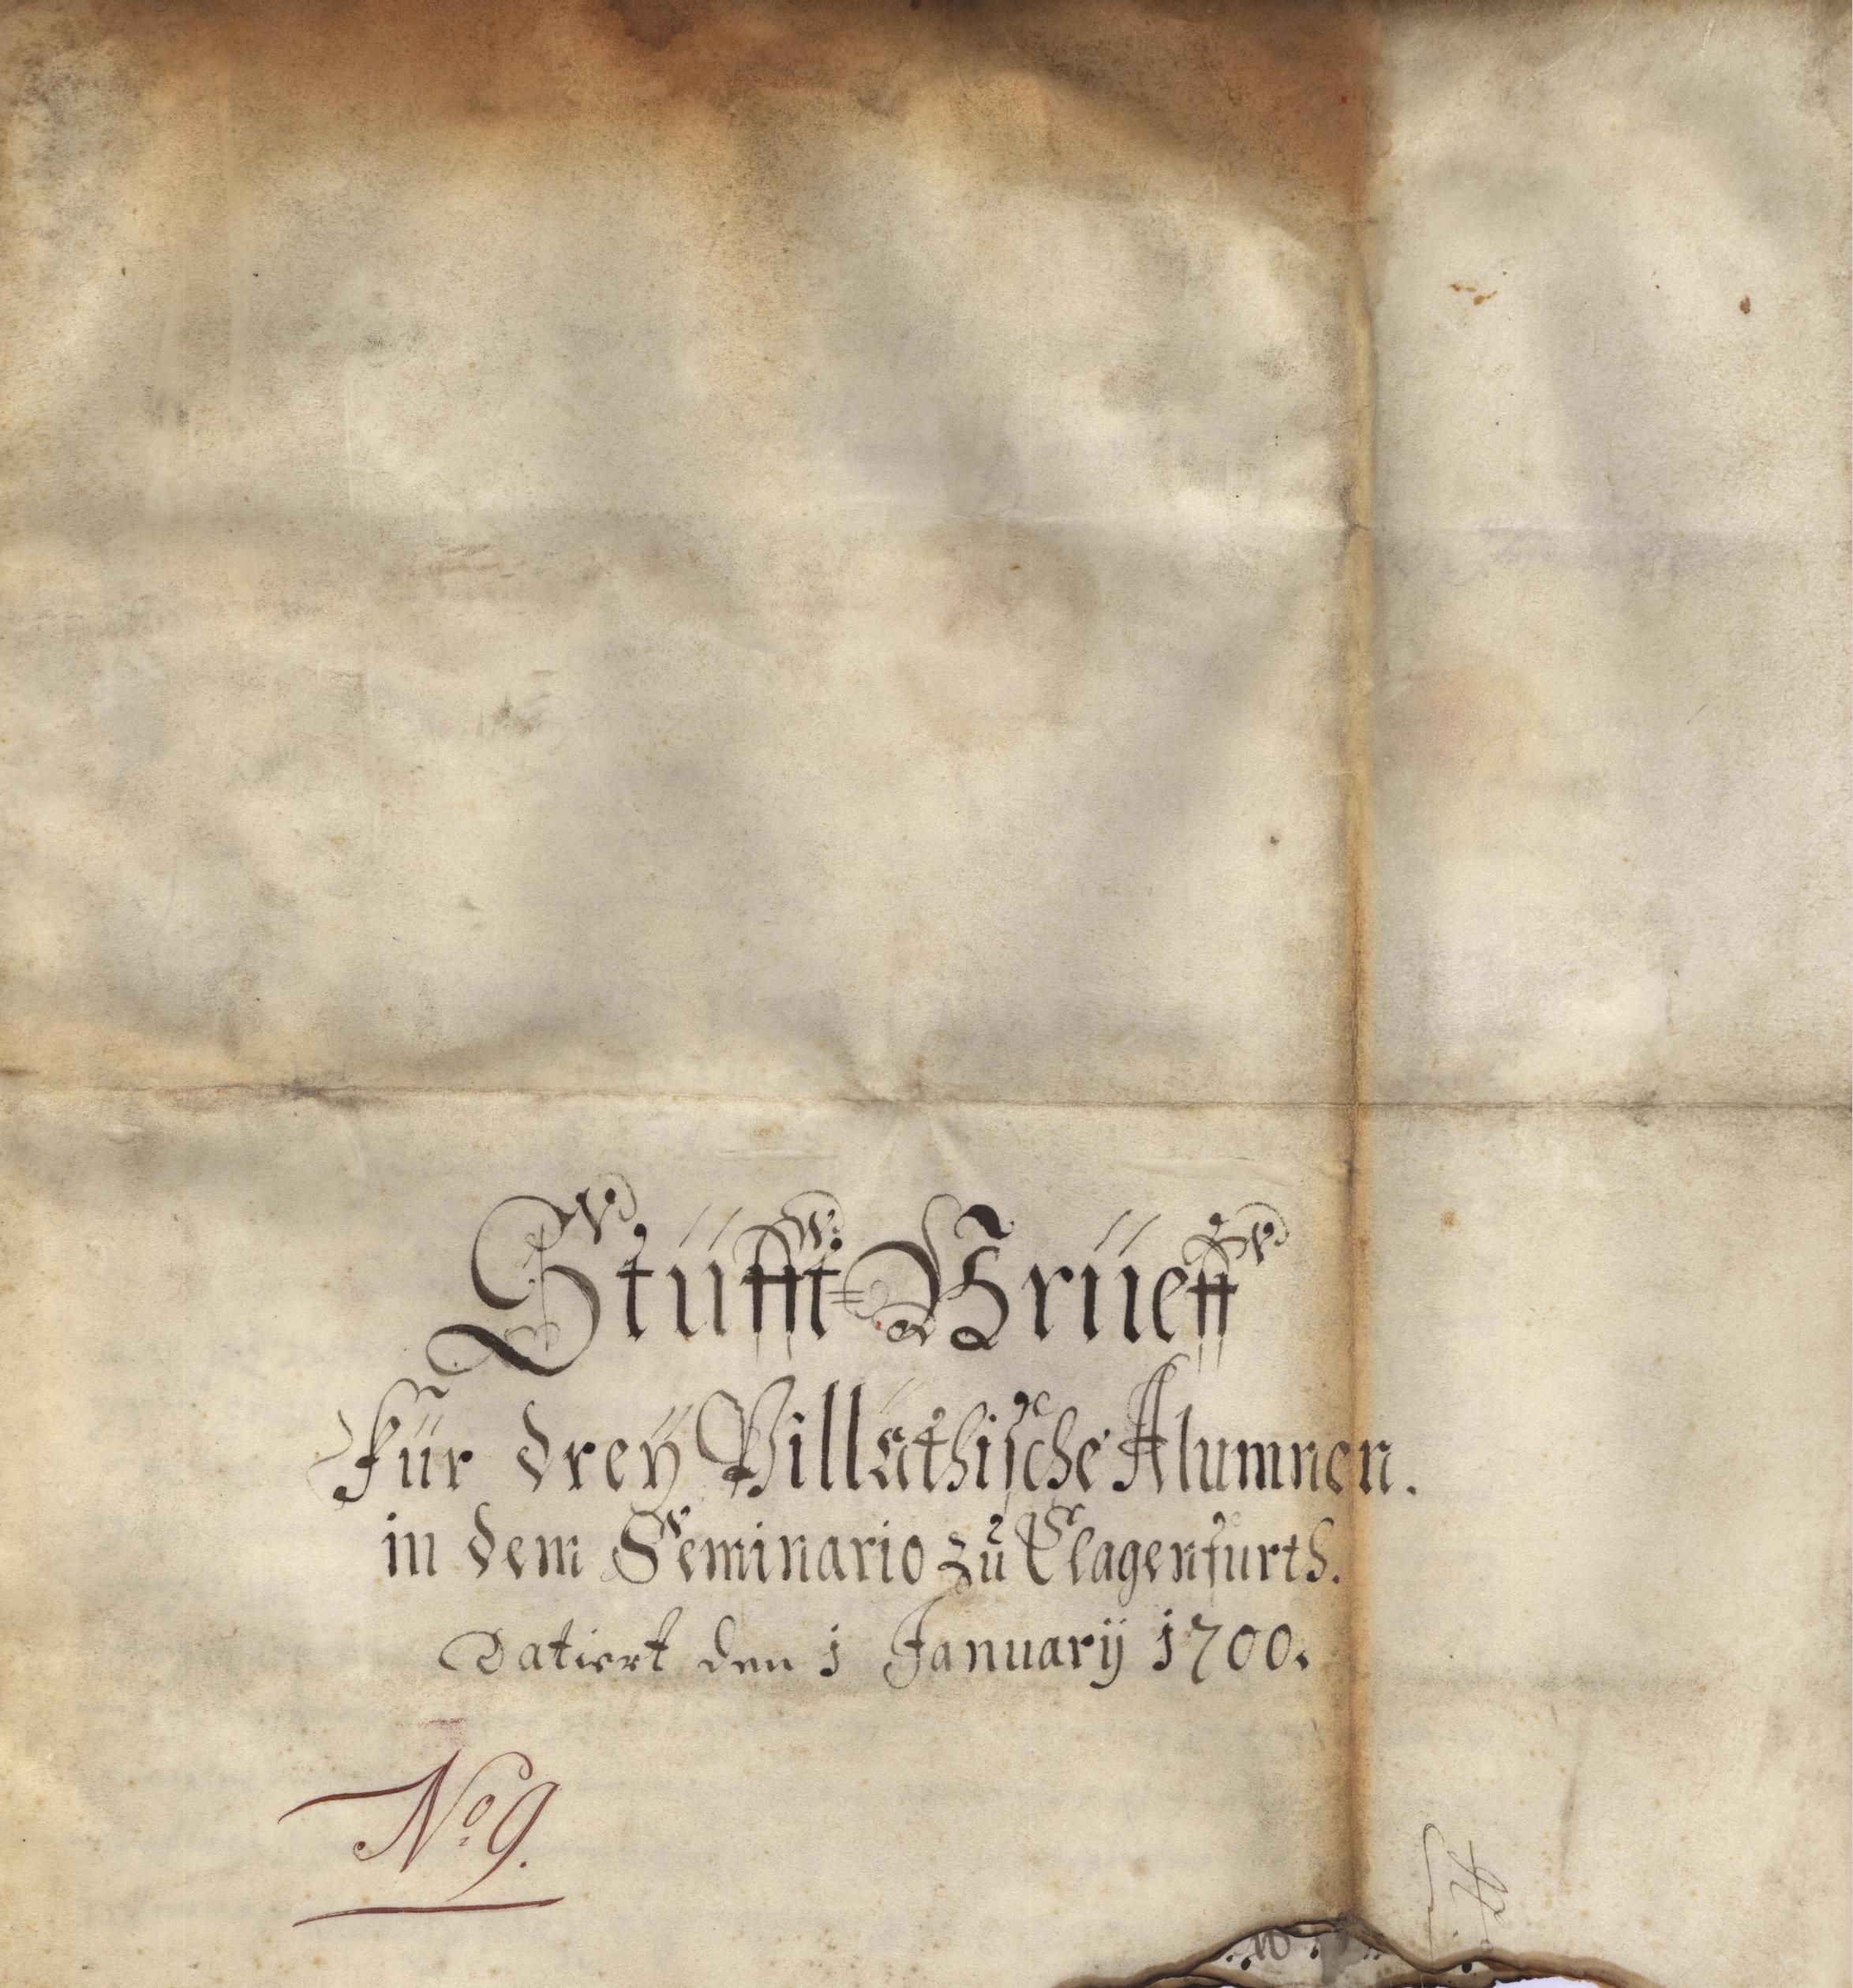 Stüfft=Brüeff
Für dreÿ Villäthische Alumnen.
in dem Seminario zu Clagenfurth.
Datiert den 1 Januarij 1700.
No. 9.